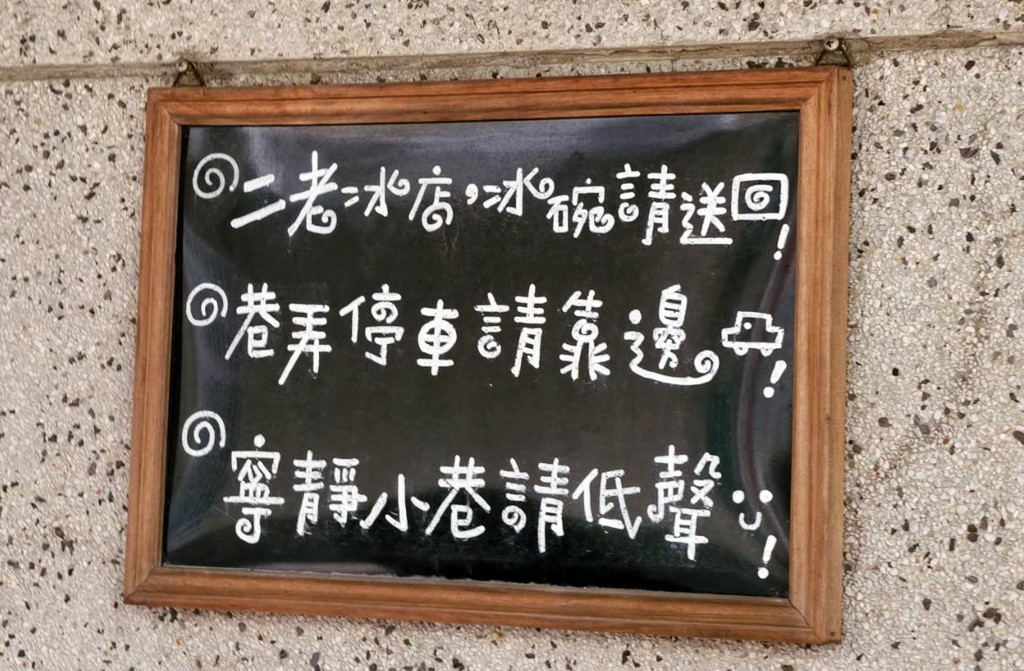 二老冰店,冰碗請送回!
巷弄停車請靠邊!
寧靜小巷請低聲!